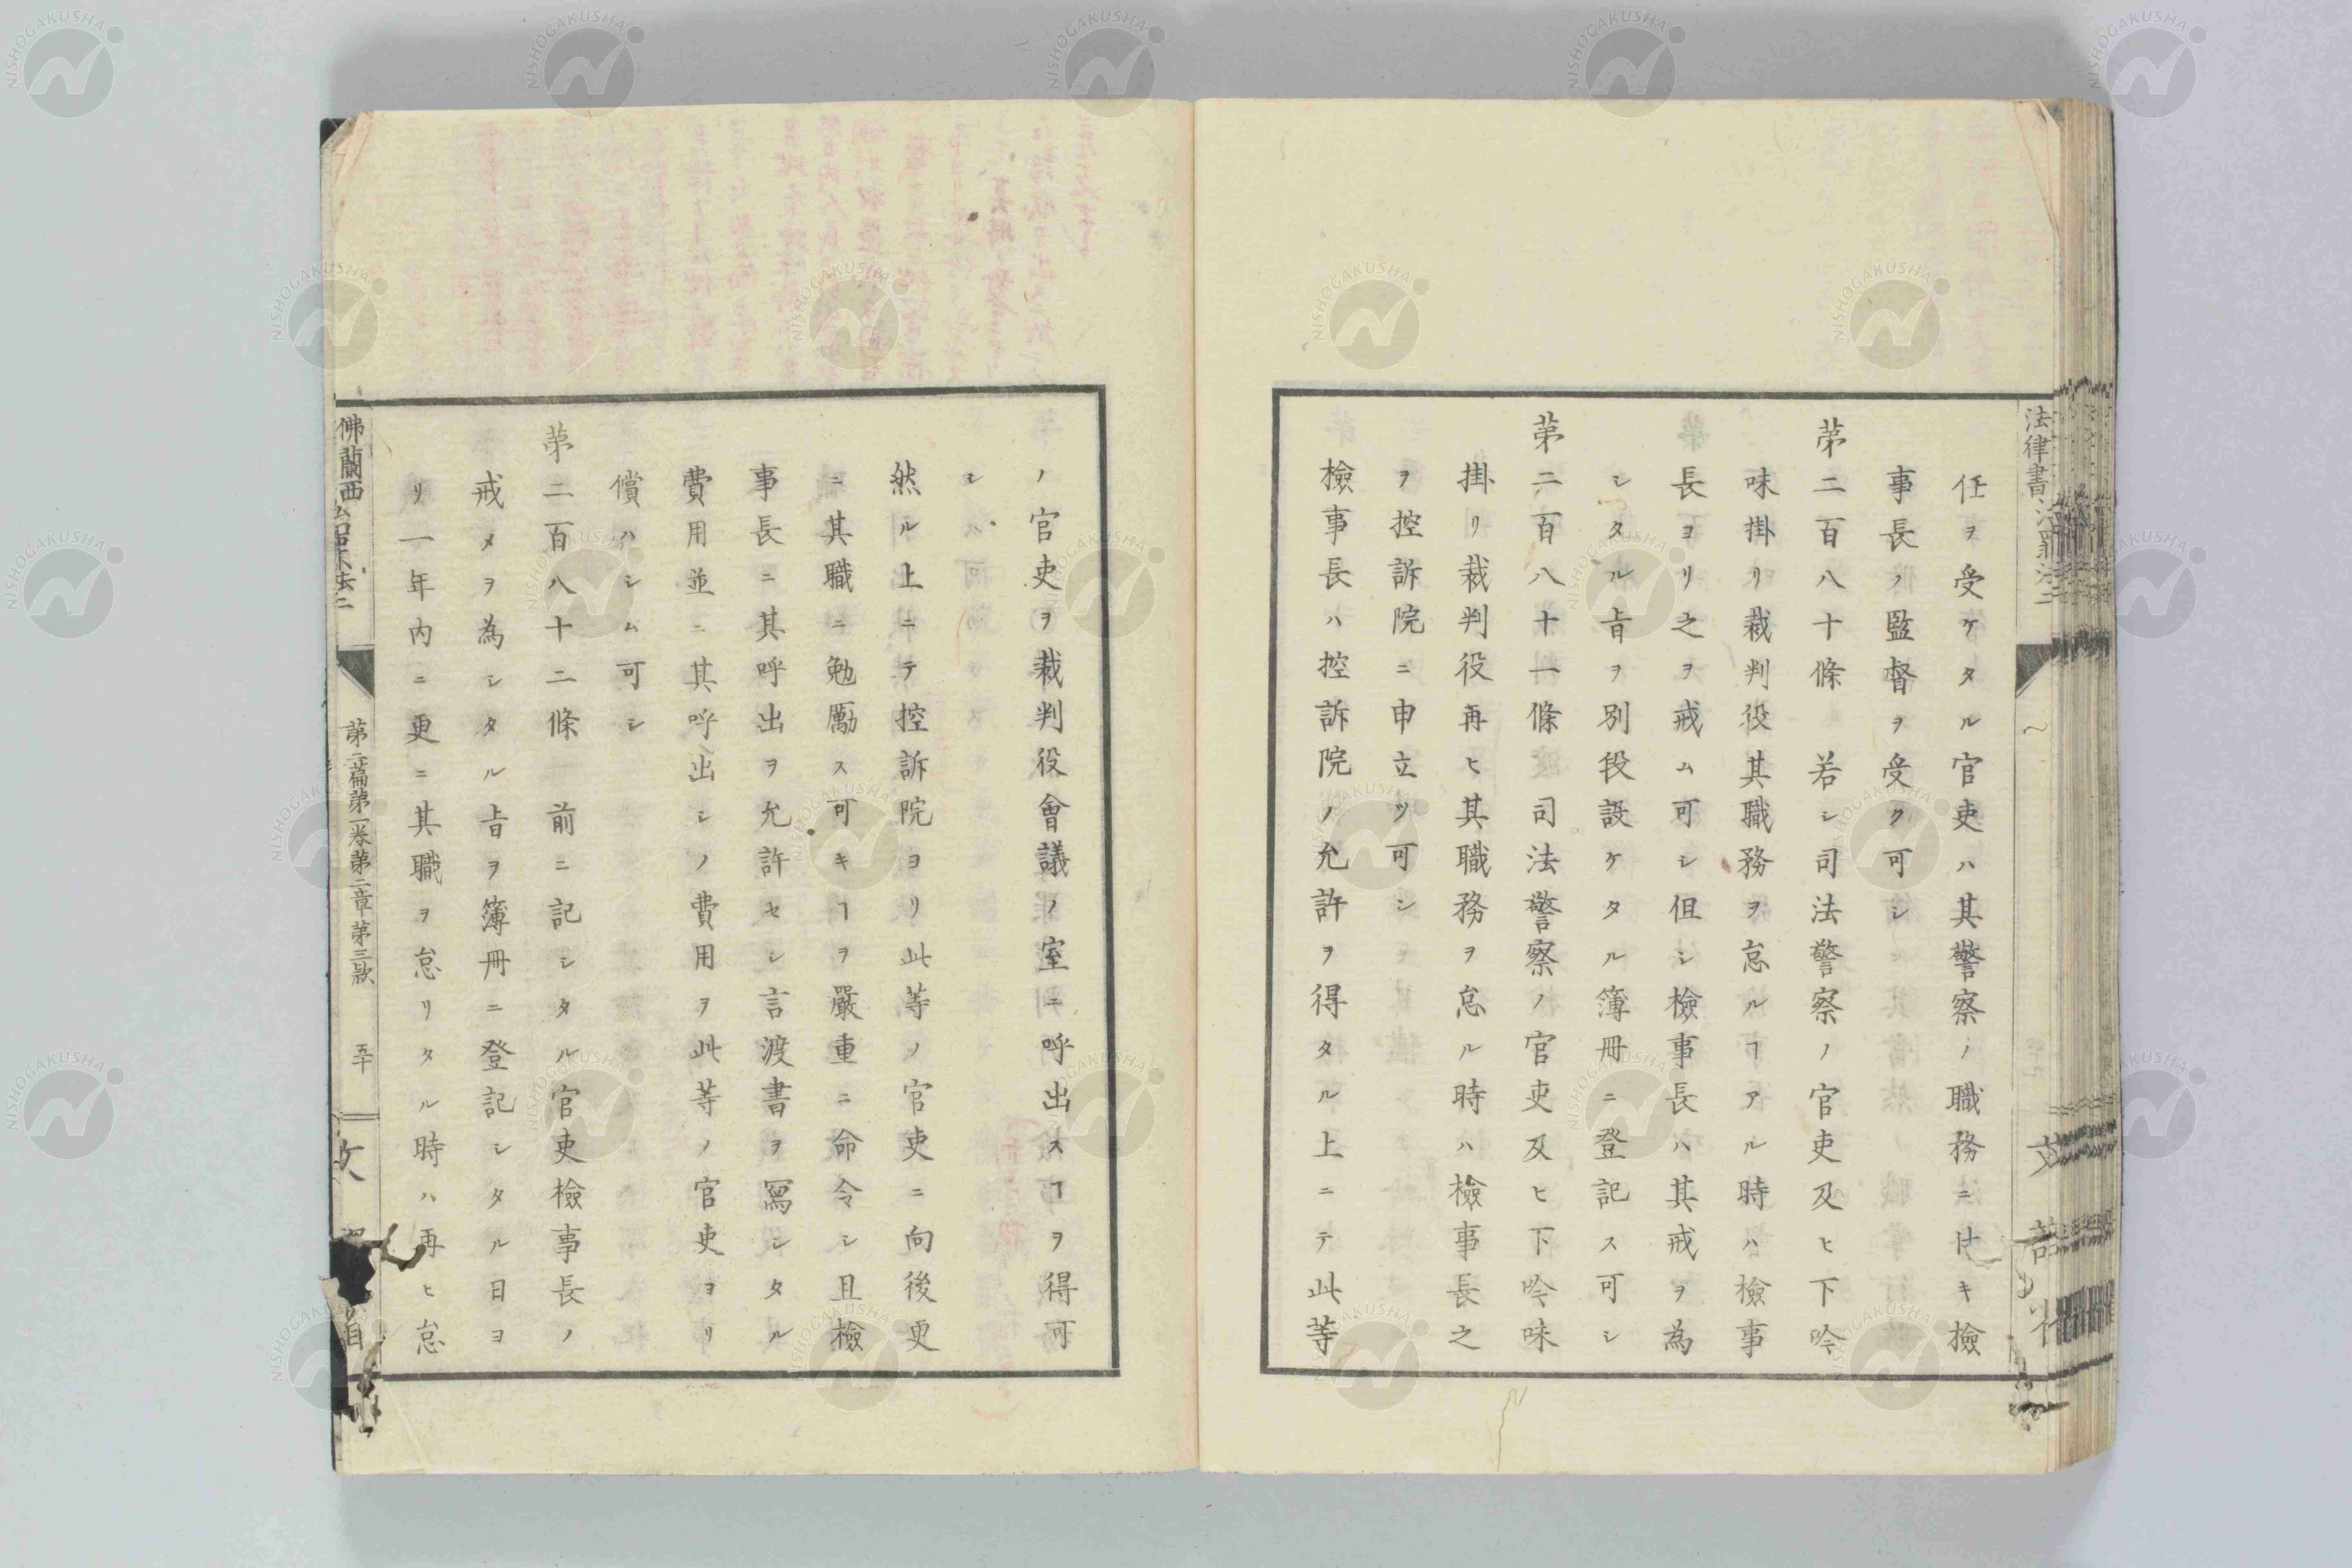 任ヲ受ケタル官吏ハ其警察ノ職務ニ付キ檢
事長ノ監督ヲ受ク可シ
第二百八十條 若シ司法警察ノ官吏及ヒ下吟
味掛リ裁判役其職務ヲ怠ルヿアル時ハ檢事
長ヨリ之ヲ戒ム可シ但シ檢事長ハ其戒ヲ為
シタル旨ヲ別段設ケタル簿冊ニ登記ス可シ
第二百八十一條 司法警察ノ官吏及ヒ下吟味
掛リ裁判役再ヒ其職務ヲ怠ル時ハ檢事長之
ヲ控訴院ニ申立ツ可シ
檢事長ハ控訴院ノ允許ヲ得タル上ニテ此等
ノ官吏ヲ裁判役會議ノ室ニ呼出スヿヲ得可
シ
然ル上ニテ控訴院ヨリ此等ノ官吏ニ向後更
ニ其職ニ勉厲ス可キヿヲ嚴重ニ命令シ且檢
事長ニ其呼出ヲ允許セシ言渡書ヲ冩シタル
費用並ニ其呼出シノ費用ヲ此等ノ官吏ヨリ
償ハシム可シ
第二百八十二條 前ニ記シタル官吏檢事長ノ
戒メヲ為シタル旨ヲ簿冊ニ登記シタル日ヨ
リ一年内ニ更ニ其職ヲ怠リタル時ハ再ヒ怠
佛蘭西
第二篇第一卷第二章第三款
五十
法律書
NISHOGAKUSHA